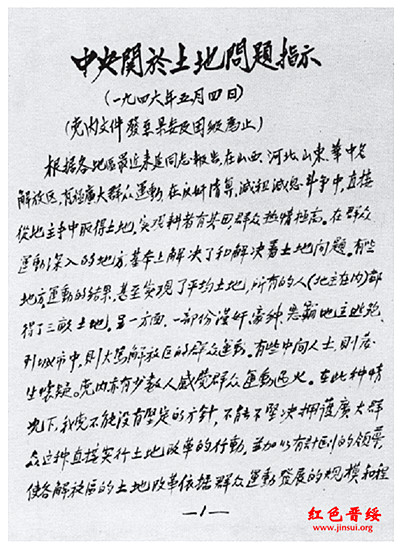 中央關於土地問題指示
(一九四六年五月四日)
(党内文件發至县委及团級為止)
根据各地區最近来延同志報告,在山西、河北、山東、華中各
解放区,有極廣大群众運動,在反奸清算,減租減息斗争中,直接
從地主手中取得土地,实现耕者有其田,群众热情極高。在群众
運動深入的地方,基本上解决了和解决着土地问题。有些
地方,運動的結果,甚至实现了平均土地,所有的人(地主在内)都
得了三畝土地。另一方面,一部份漢奸、豪紳、恶霸、地主逃跑
到城市中,则大骂解放区的群众運動。有些中间人士,则发
生怀疑。党内亦有少数人感觉群众運動过火。在此种情
况下,我党不能没有坚定的方針,不能不坚决拥護廣大群
众这种直接实行土地改革的行動,並加以有計划的領導,
使各解放区的土地改革依据群众運動發展的规模和程
—1—
红色晋绥
www.jinsui.org